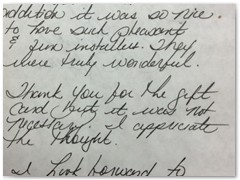 addition it was so nice
to have such pleasant
& fun installers. They
were truly wonderful.
Thank you for the gift
card but it was not
necessary. I appreciate
the thought.
I look forward to